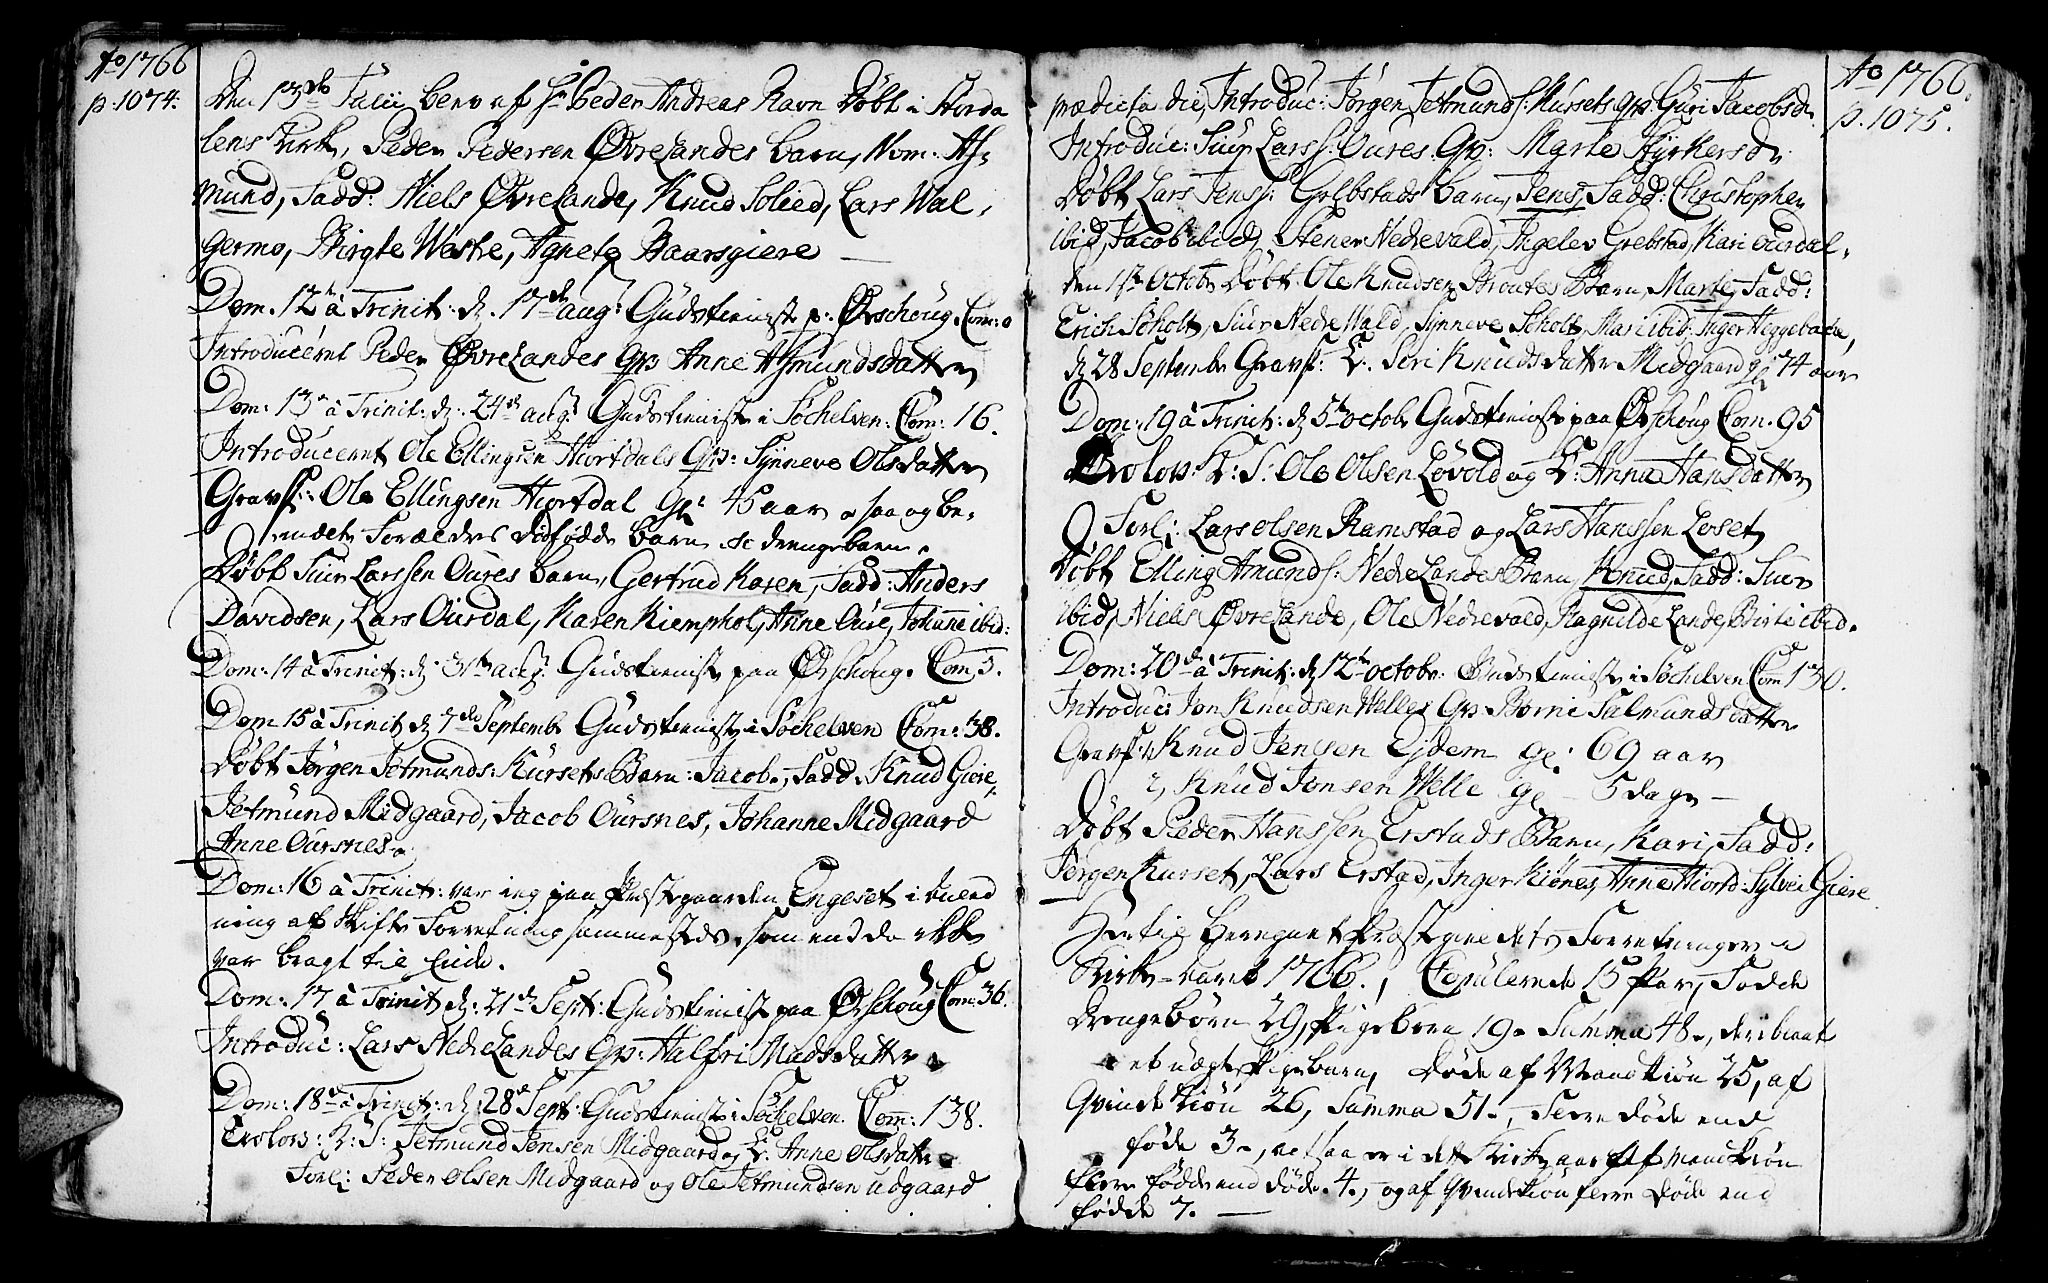 Ao 1766
p. 1074.
Den 13de Julii blev af Hr Peder Andreas Ravn Døbt i Storda
lens Kirke, Peder Pedersen Øvrelandes barn, Nom: As-
mund, Fadd: Niels Øvrelande, Knud Solied, Lars Wal-
germo, Birgte Westre, Agnete Baarsgiere
Dom. 12te à Trinit: d. 17de aug: Gudstienist p. Ørschoug. Com: 0
Introduceret Peder Øvrelandes Qv: Anne Asmundsdatter
Dom: 13de à Trinit: d: 24de aug: Gudstieniste i Søchelven: Com: 16.
Introduceret Ole Ellingsen Hiortdals Qv: Synneve Olsdatter
Gravf: Ole Ellingsen Hiortdal Gl: 45 aar. saa og be-
meldte Forældres dødfødde barn. sc drengebarn.
Døbt Siur Larssen Oures barn, Gertrud Karen, Fadd: Anders
Davidsen, Lars Ouerdal, Karen Kiemphol, Anne Oure, Johanne ibid:
Dom: 14 à Trinit: d: 31te aug: Gudstienist paa Ørschoug. Com 3.
Dom 15 à Trinit d 7de Septembr Gudstieniste i Søchelven Com: 38.
Døbt Jørgen Jetmunds: Kursets Barn: Jacob, Fadd. Knud Giere,
Jetmund Midgaard, Jacob Oursnes, Johanne Midgaard
Anne Oursnes.
Dom: 16 à Trinit: var ieg paa Præstegaarden Engeset i
ning af Skifte Forretning sammesteds, som endda ikke
var bragt til Ende.
Dom: 17 à Trinit d: 21de Sept: Gudstienist paa Ørschoug Com: 36.
Introduc: Lars Nedrelandes Qv: Halfri Madsdatter
Dom: 18de à Trinit: d: 28de Sept: Gudstieniste i Søchelven. Com: 138.
Trolov: K: S: Jetmund Jonsen Midgaard og K: Anne Olsdatter
Forl: Peder Olsen Midgaard og Ole Jetmundsen Udgaard
Ao 1766.
p. 1075.
prædicta die, Introduc: Jørgen Jetmunds: Kursets qv: Guri Jacobsdr.
Introduc: Siur Larss: Oures. Qv: Marte Styrkersdr
Døbt Lars Jenss: Grebstads barn, Jens, Fadd: Christopher
ibid, Jacob ibid, Stener Nedrevald, Ingelev Grebstad, Kari Ourdal.
den 1ste Octobr Døbt. Ole Knudsen Brautes Barn, Marte, Fadd:
Erich Søholt, Siur Nedre Wald, Synneve Søholt, Mari ibid: Inger Heggebache,
d 28 Septembr Gravf: K. Siri Knudsdatter Midgaard gl 74 aar
Dom: 19 à Trinit: d 5te octobr Gudstieniste paa Ørschoug Com. 95
Trolov: K: S: Ole Olsen Løvold og K: Anna Hansdatter
Forl: Lars Olsen Ramstad og Lars Hanssen Løset
Døbt Elling Amunds: Nedrelandes Barn, Knud, Fadd: Siur
ibid, Niels Øvrelande, Ole Nedrevald, Ragnilde Lande, Birte ibid.
Dom: 20de à Trinit: d 12te octobr. Gudstieniste i Søchelven Com 130.
Introduc: Jon Knudsen Welles Qv: Borni Salmundsdatter
Gravf: 1, Knud Jensen Ejdem gl: 69 aar
2, Knud Jonsen Welle gl – 5 dage –
Døbt Peder Hanssen Erstads Barn, Kari, Fadd:
Jørgen Kurset, Lars Erstad, Inger Kiønes, Anne Hiortd: Sylvei Giere
Hertil beregnet Præstegieldets Forretninger i
Kirke-aaret 1766., Copulerede 15 Par, Fødde
Drengebørn 29, Pigebørn 19. Summa 48., deriblant
et uægte Pigebarn, Døde af Mandkiøn 25, af
Qvindekiøn 26, Summa 51., Flere døde end
føde 3., altsaa er i dette Kirkeaar af Mandkiøn
flere fødde end døde. 4., og af Qvindekiøn flere døde end
fødde 7.